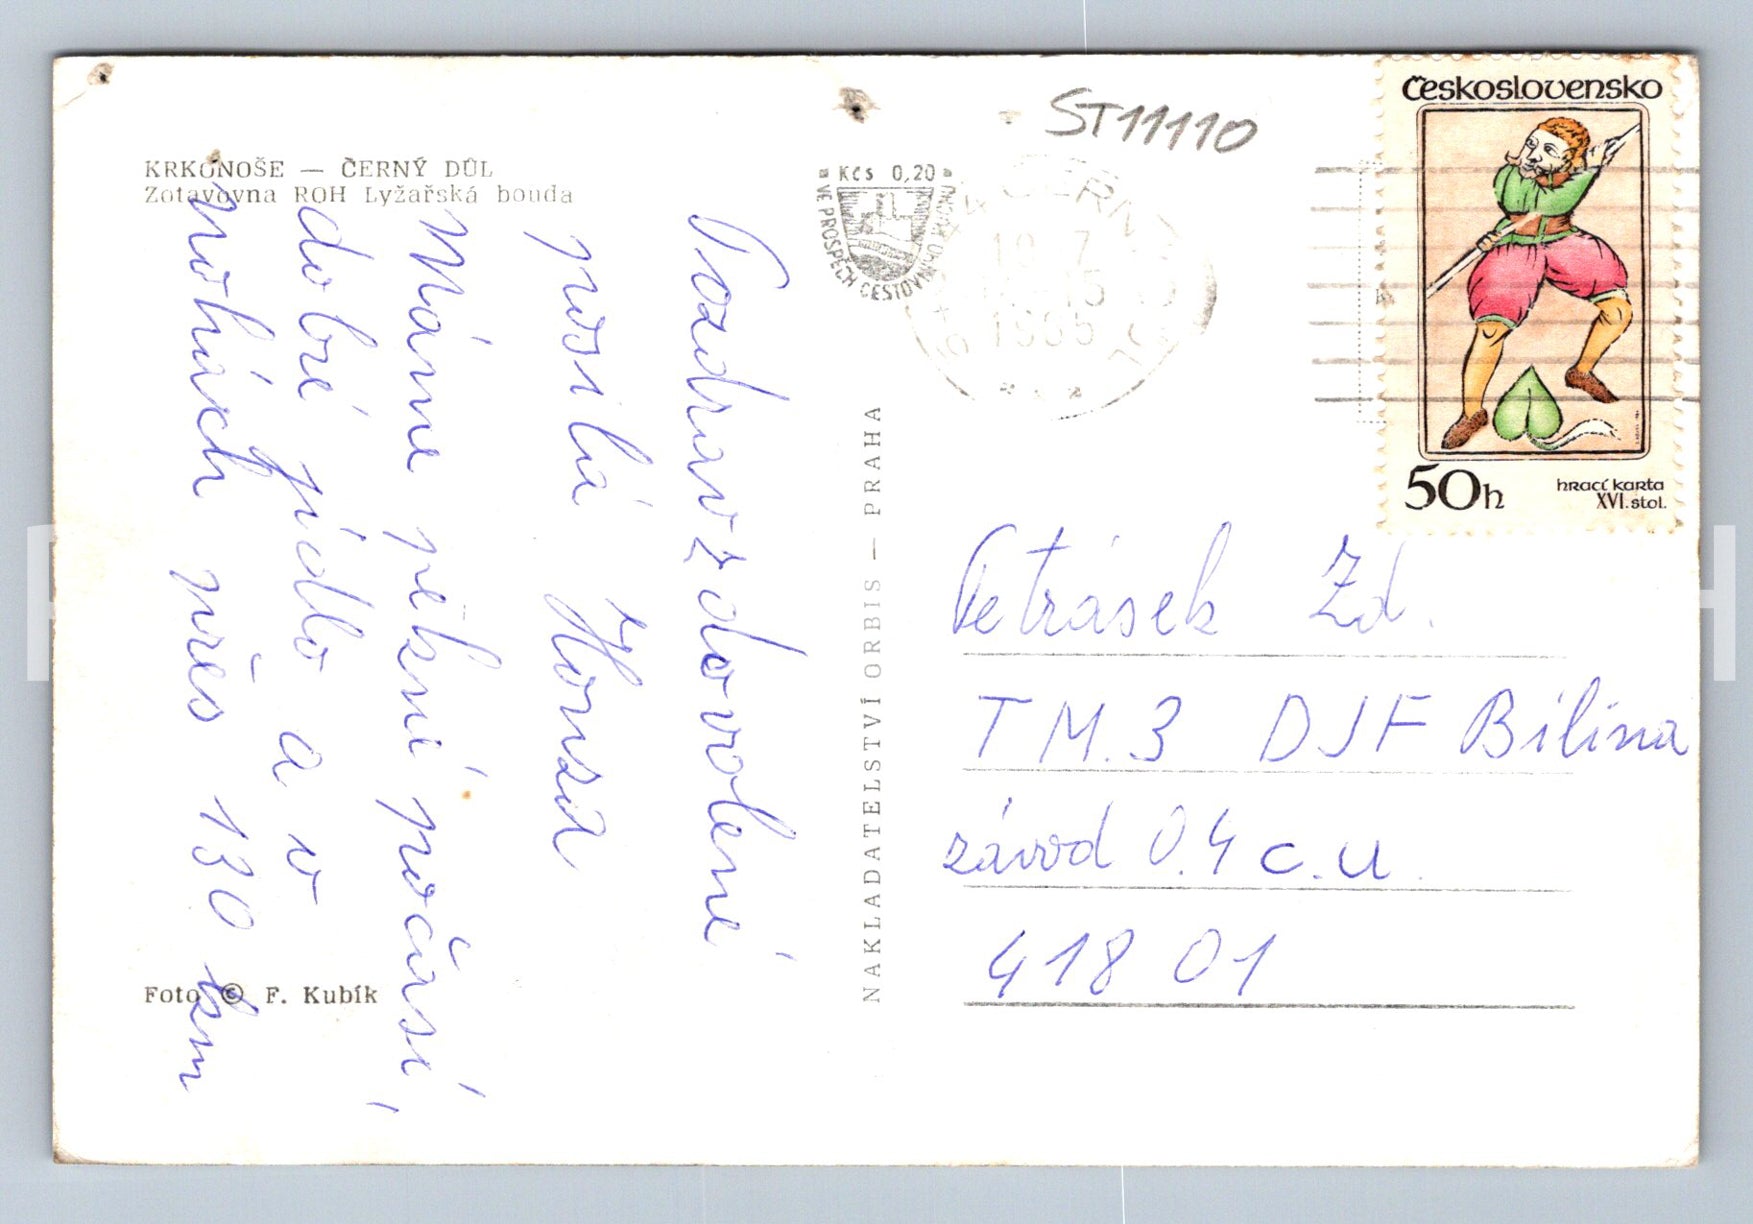 ST11110
Československo
50h
hrací karta
XVI. stol.
KRKONOŠE — ČERNÝ DŮL
Zotavovna ROH Lyžařská bouda
Kčs 0,20
VE PROSPĚCH CESTOVNÍHO
ČERN
10. 7
15
1985
Pozdrav z dovolené
posílá Honza
Máme pěkné počasí,
dobré jídlo a v
nohách přes 130 km
NAKLADATELSTVÍ ORBIS — PRAHA
Petrásek Zd.
TM.3 DJF Bílina
závod 0.4 c.u.
418 01
Foto © F. Kubík